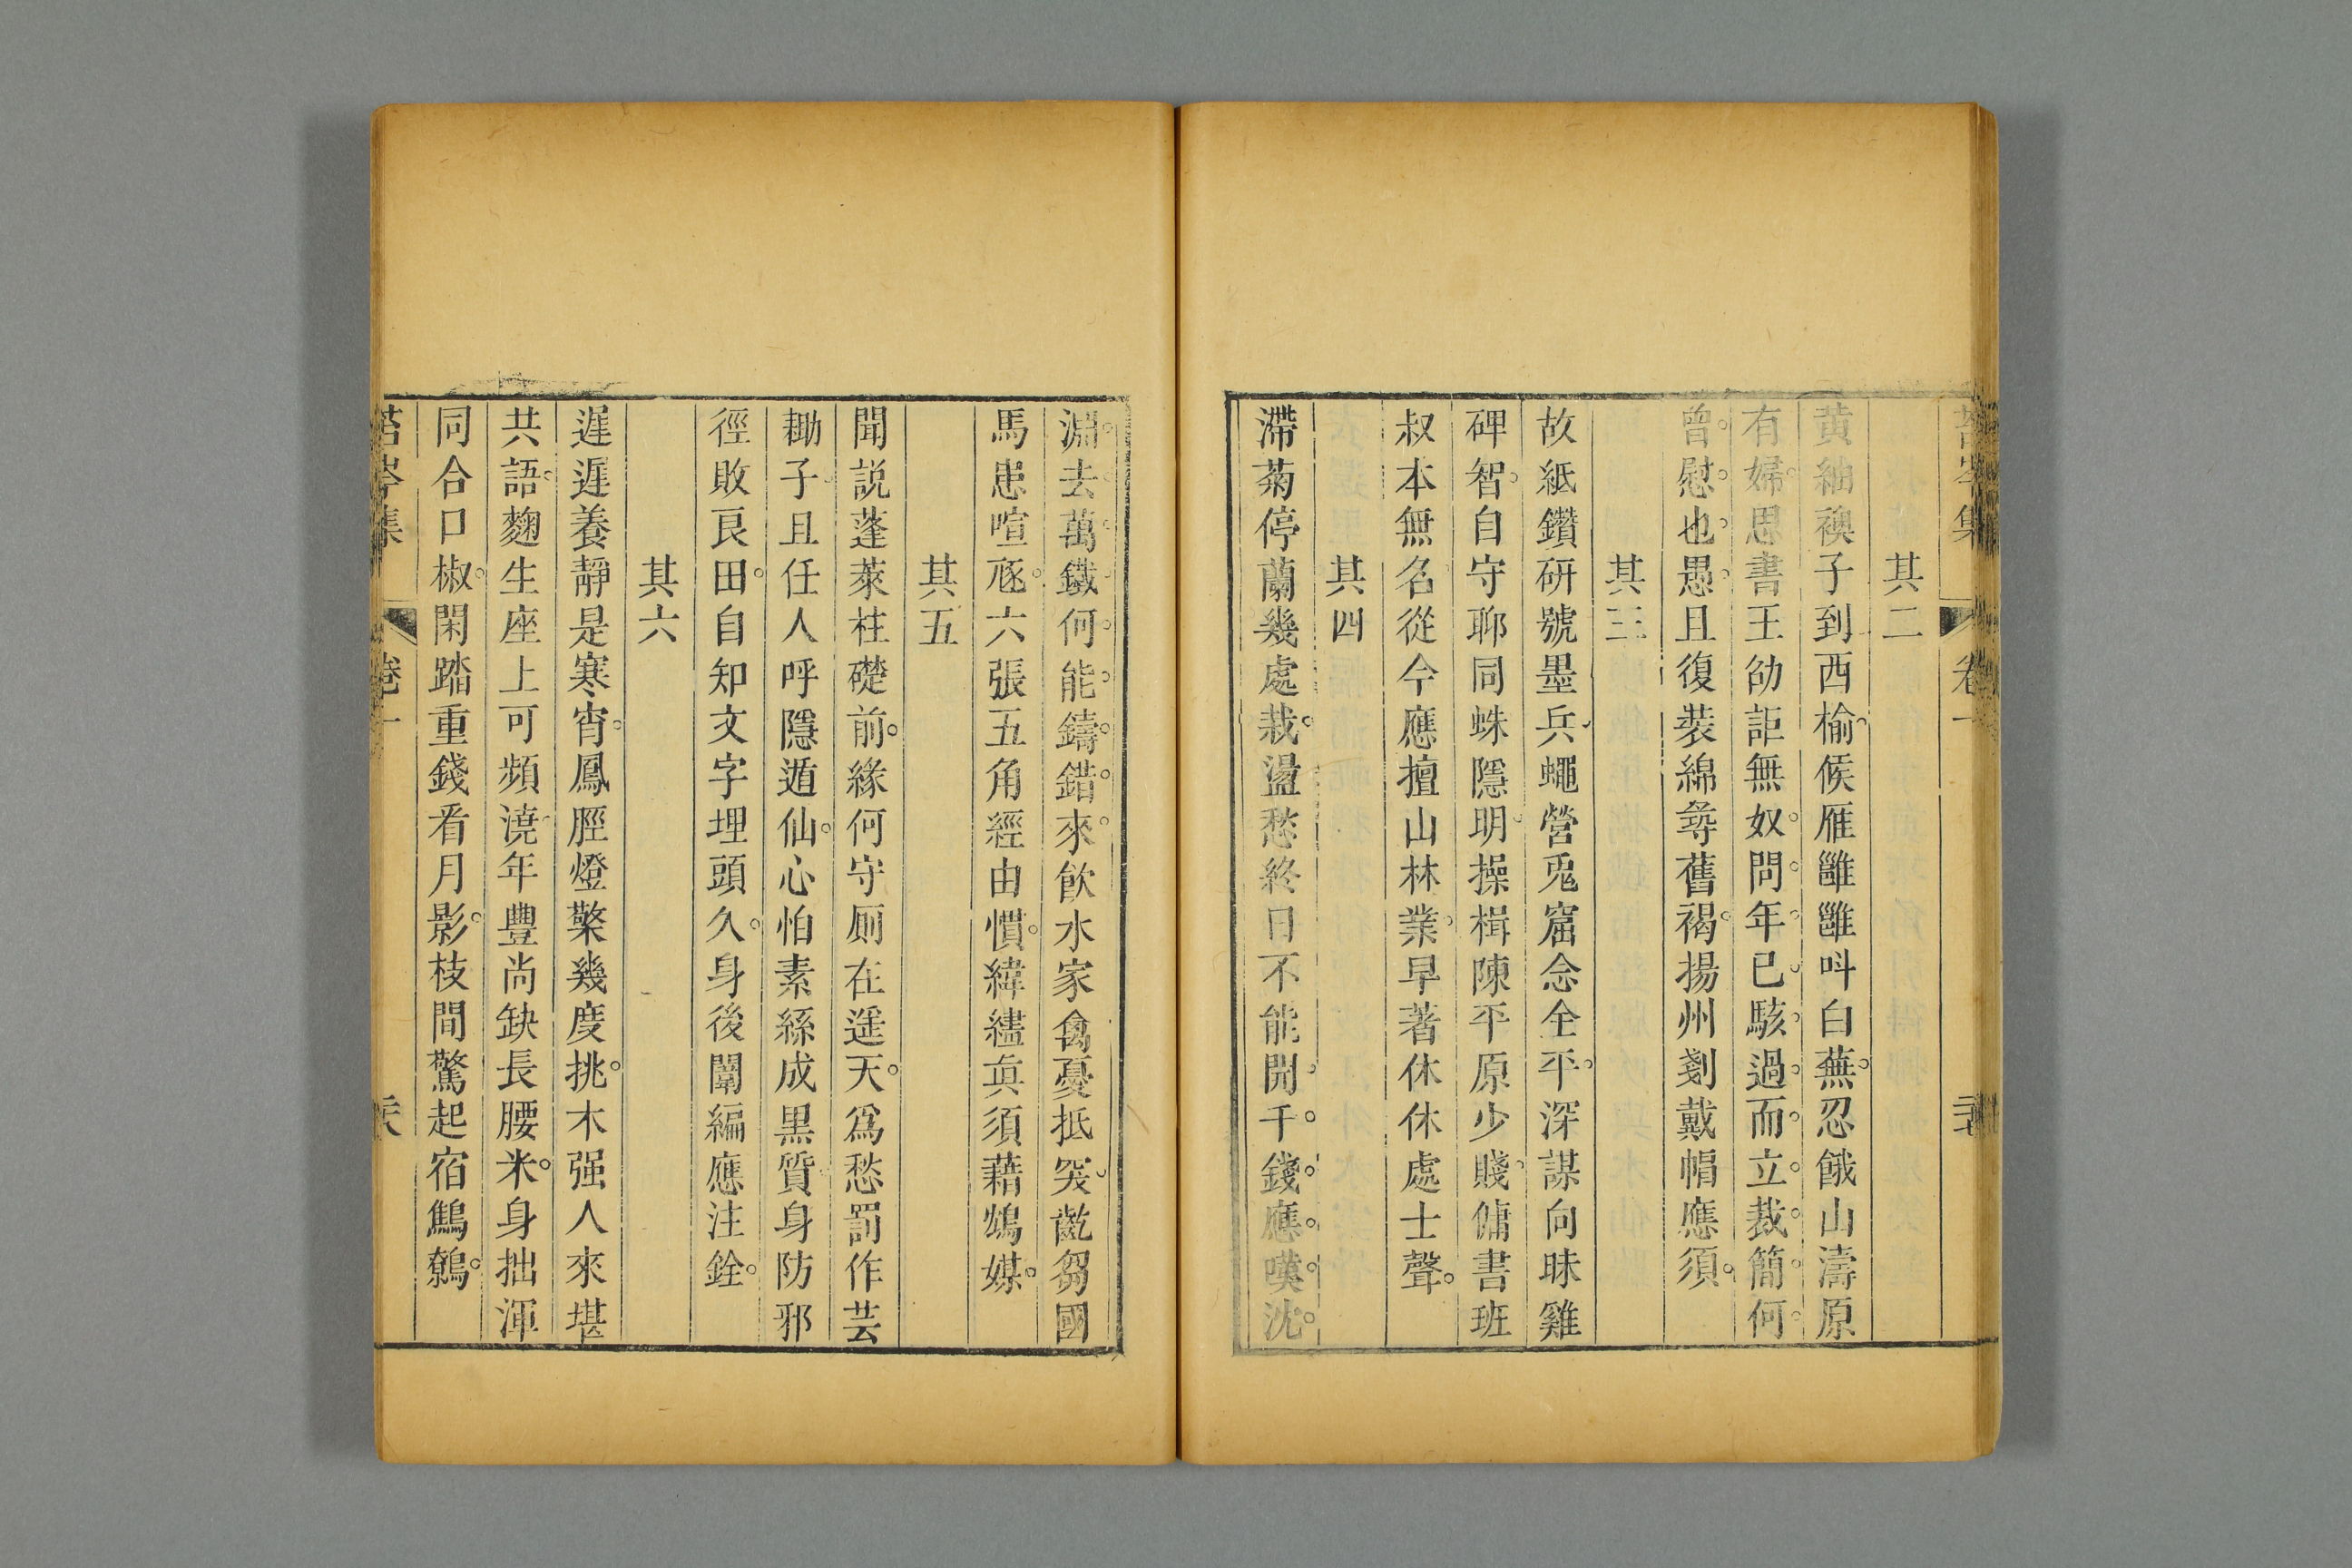 苔岑集 卷一
其二
黄紬襖子到西榆候雁雝雝呌白蕪忍餓山濤原
有婦思書王劭詎無奴問年已駭過而立裁簡何
曾慰也愚且復裝綿尋舊褐揚州剗戴帽應須
其三
故紙鑽研號墨兵蠅營兎窟念全平深謀向昧雞
碑智自守聊同蛛隱明操楫陳平原少賤傭書班
叔本無名從今應擅山林業早著休休處士聲
其四
滯菊停蘭幾處栽盪愁終日不能開千錢應嘆沈
淵去萬鐵何能鑄錯來飲水家禽憂抵突齕芻國
馬患喧豗六張五角經由慣緯繣眞須藉鴆媒
其五
聞説蓬萊柱礎前緣何守厠在遥天爲愁罰作芸
耡子且任人呼隱遁仙心怕素絲成黒質身防邪
徑敗良田自知文字埋頭久身後闈編應注銓
其六
遲遲養靜是寒宵鳳脛燈檠幾度挑木强人來堪
共語麴生座上可頻澆年豐尚缺長腰米身拙渾
同合口椒閑踏重錢看月影枝間驚起宿鷦鷯
苔岑集 卷一